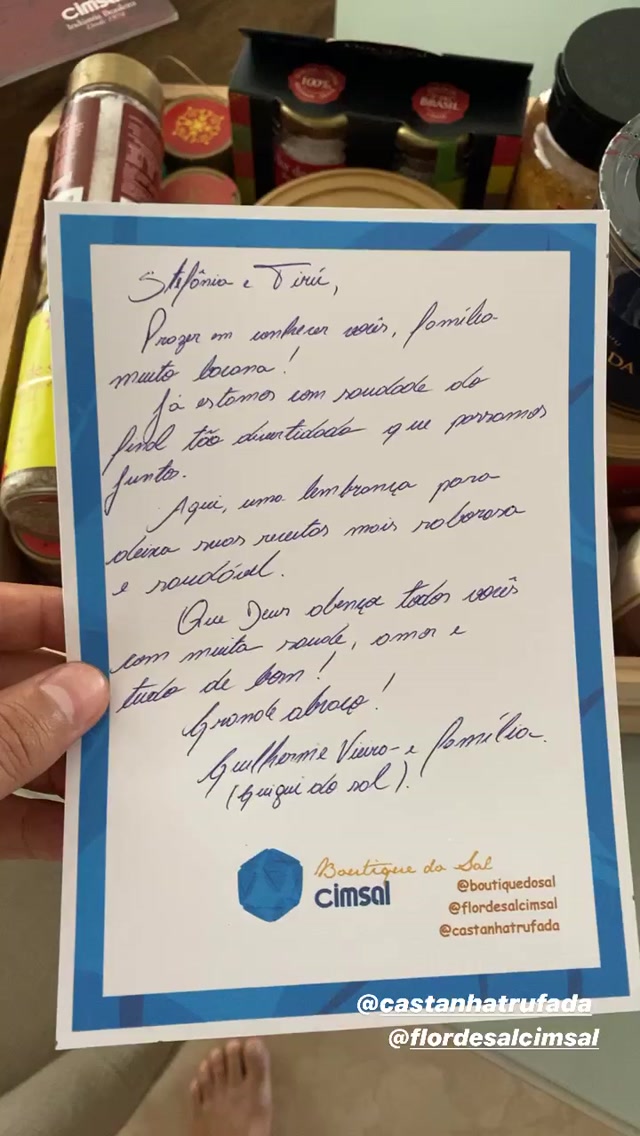 cimsal
Indústria Brasileira
Desde 1974
100%
BRASIL
DA
Stefânia e Tirú,
Prazer em conhecer vocês, família
muito bacana!
Já estamos com saudade do
final tão divertidada que passamos
juntos.
Aqui, uma lembrança para
deixa suas receitas mais saborosa
e saudável.
Que Deus abençoe todos vocês
com muita saude, amor e
tudo de bom!
Grande abraço!
Guilherme Vieira e família.
(Guigui do sal).
Boutique do Sal
cimsal
@boutiquedosal
@flordesalcimsal
@castanhatrufada
@castanhatrufada
@flordesalcimsal